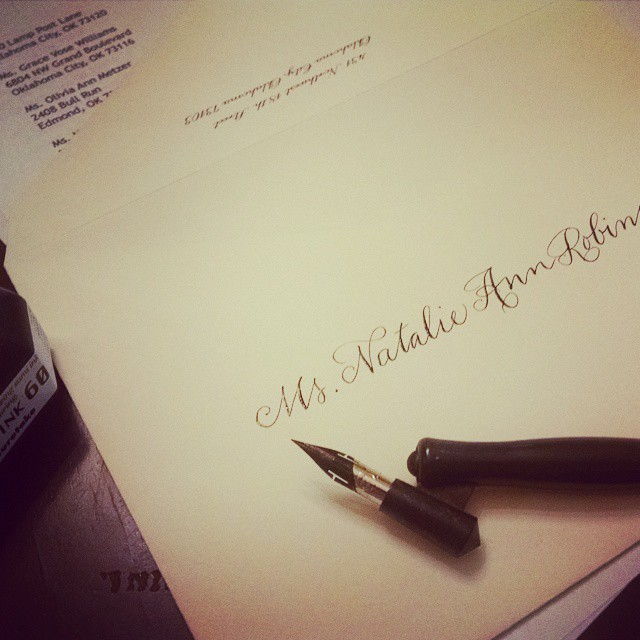 Lamp Post Lane
Oklahoma City, OK 73120
Ms. Grace Rose Williams
6804 NW Grand Boulevard
Oklahoma City, OK 73116
Ms. Olivia Ann Metzer
2408 Bull Run
Edmond, OK
Ms.
431 Northwest 18th Street
Oklahoma City, Oklahoma 73103
Ms. Natalie Ann Robin
INK 60